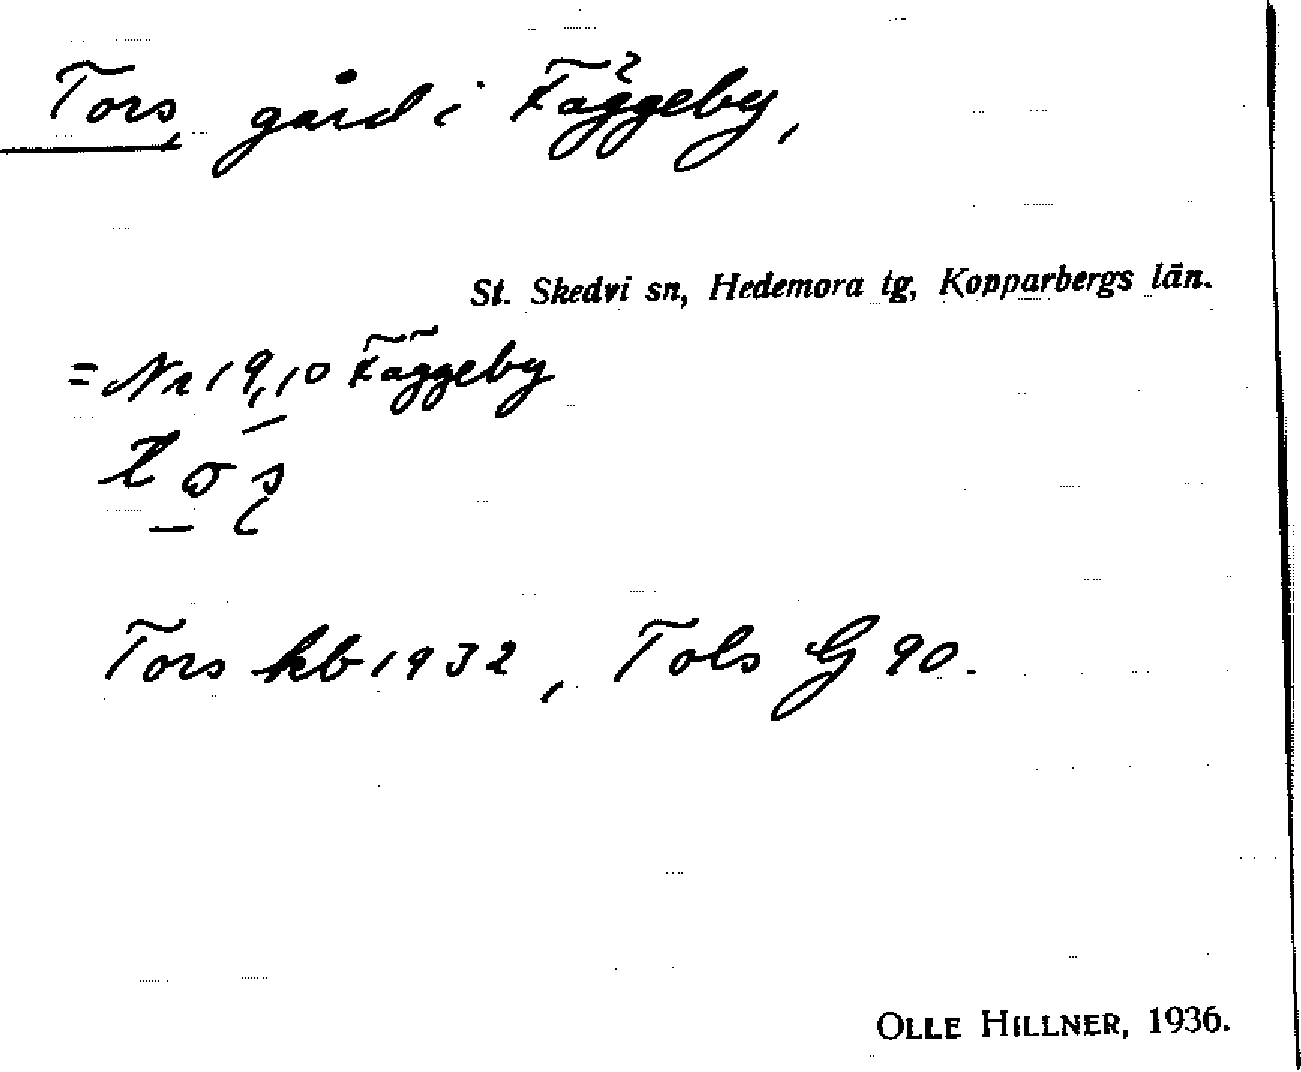 Tors, gård i Fäggeby,
St. Skedvi sn, Hedemora tg, Kopparbergs län.
= Nr 19,10 Fäggeby
Tors kb 1932, Tols G 90.
OLLE HILLNER, 1936.